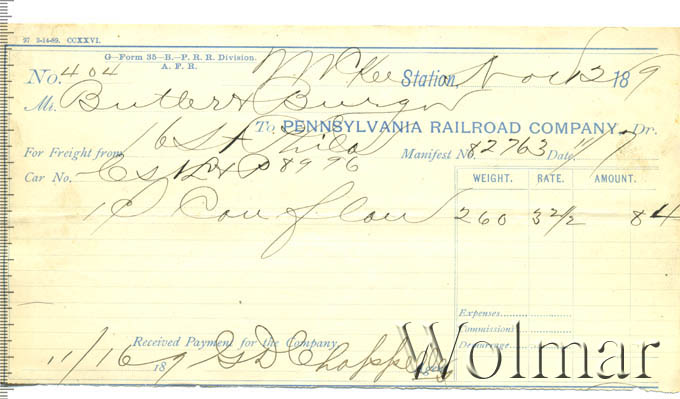 97 3-14-89. CCXXVI.
G—Form 35—B.—P. R. R. Division.
A. F. R.
No. 404 McKee Station, Nov 12 1889
Mr. Butler &
To PENNSYLVANIA RAILROAD COMPANY, Dr.
For Freight from 16 St Phila Manifest No. 82763 Date 11/7
Car No. 8996
WEIGHT. RATE. AMOUNT.
260 32 1/2 84
Expenses
Commissions
Demurrage
Received Payment for the Company,
11/16 189 G D Chappell
Wolmar